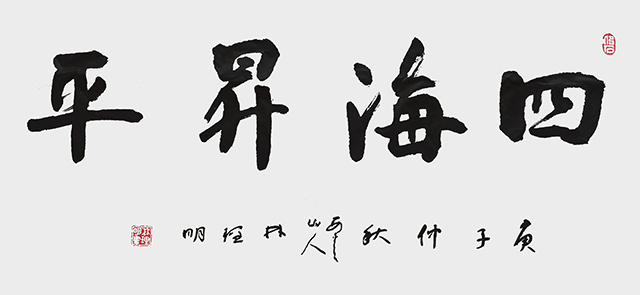 四海昇平
庚子仲秋山人林明